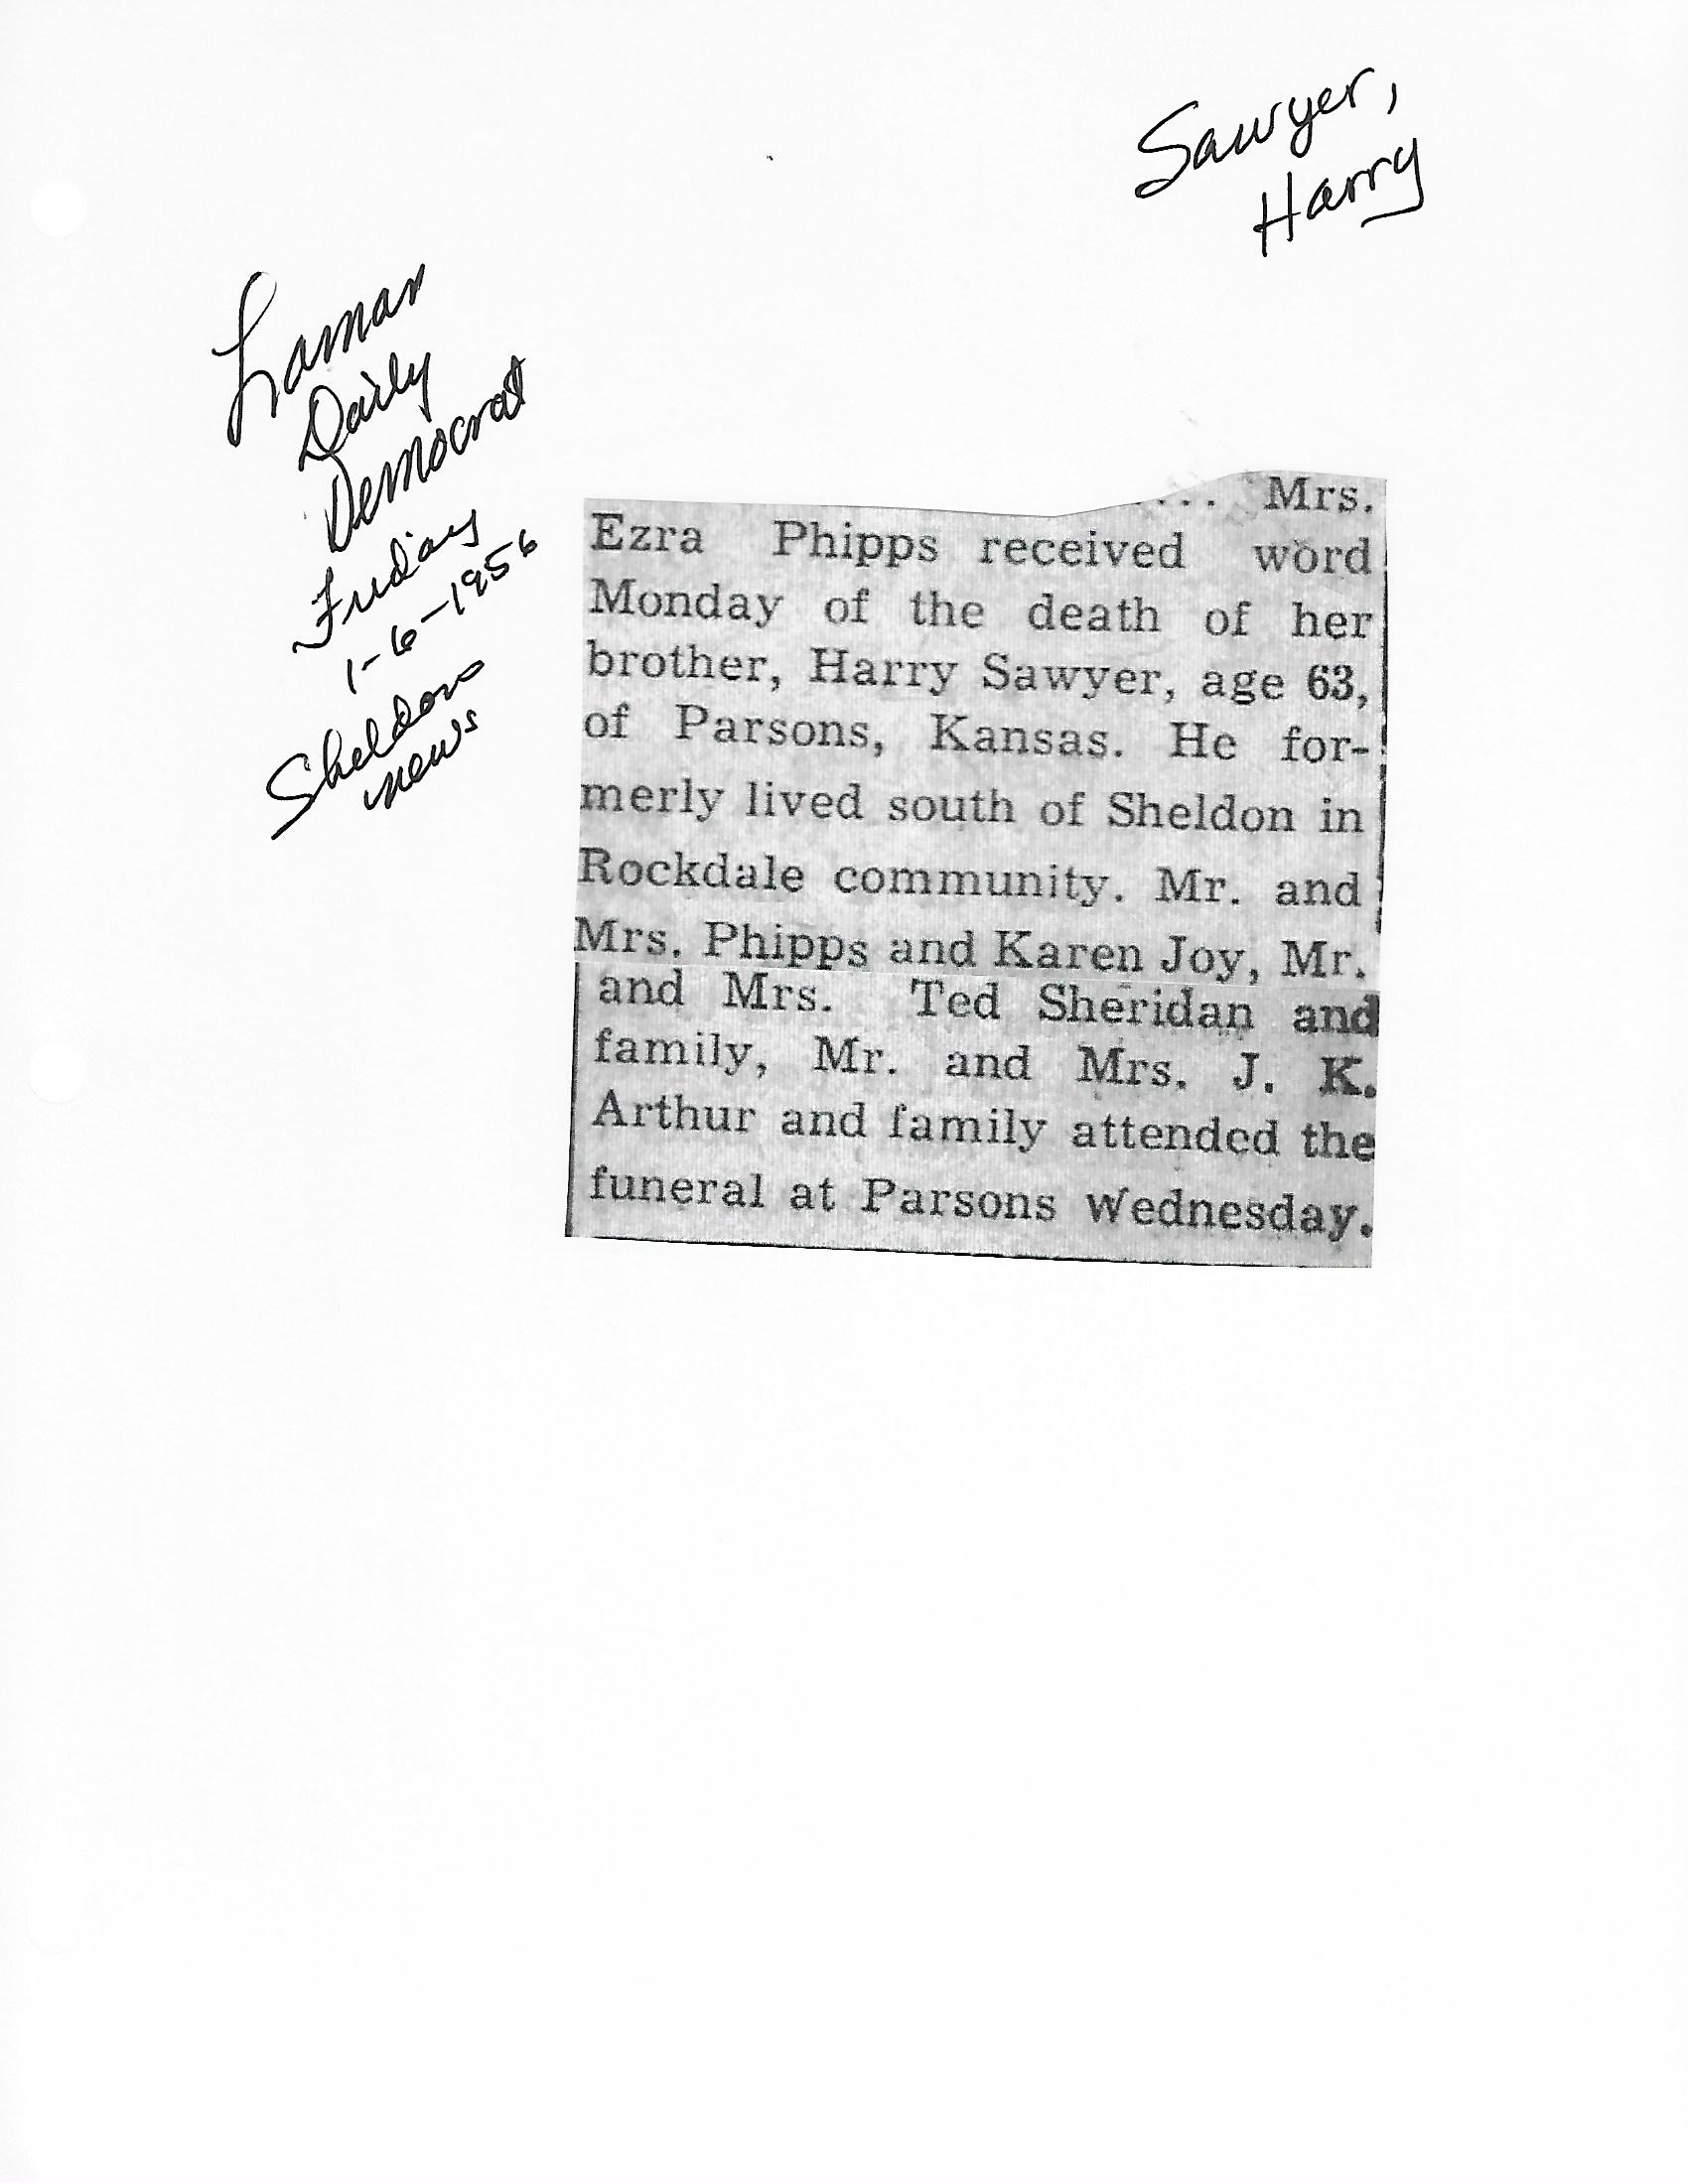 Sawyer,
Harry
Lamar
Daily
Democrat
Friday
1-6-1956
Sheldon
news
.... Mrs.
Ezra Phipps received word
Monday of the death of her
brother, Harry Sawyer, age 63,
of Parsons, Kansas. He for-
merly lived south of Sheldon in
Rockdale community. Mr. and
Mrs. Phipps and Karen Joy, Mr.
and Mrs. Ted Sheridan and
family, Mr. and Mrs. J. K.
Arthur and family attended the
funeral at Parsons Wednesday.